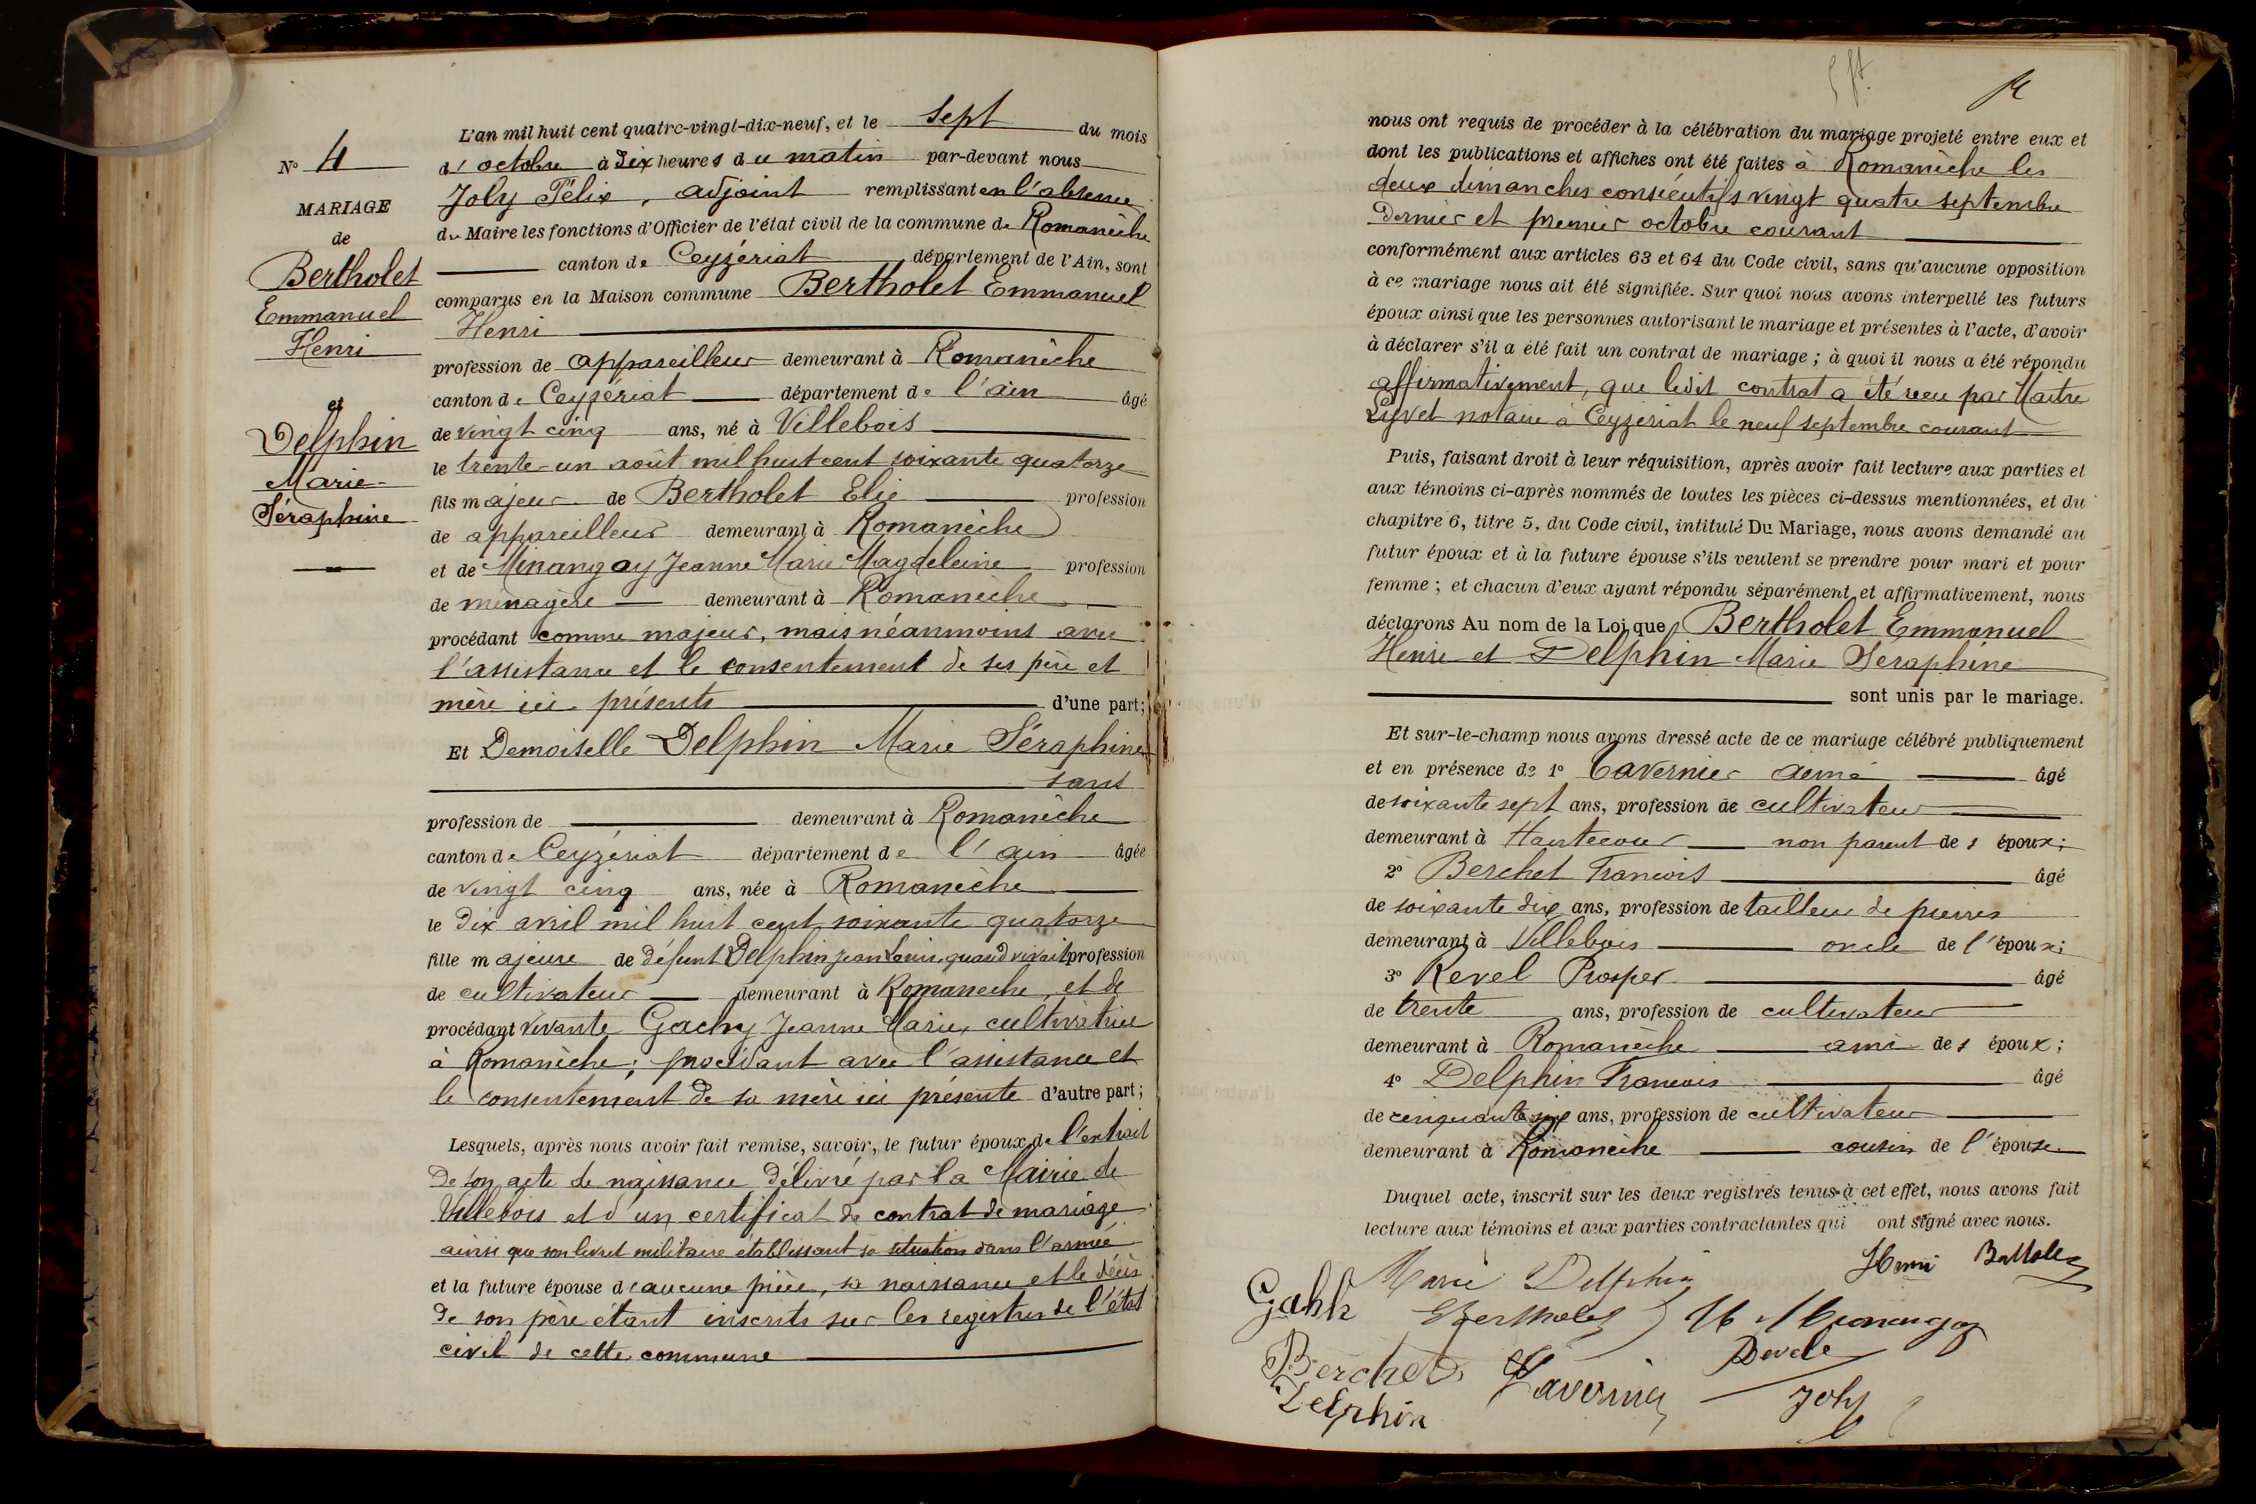 L'an mil huit cent quatre-vingt-dix-neuf, et le sept du mois
d'octobre à dix heures du matin par-devant nous
Joly Félix, adjoint remplissant en l'absence
du Maire les fonctions d'Officier de l'état civil de la commune de Romanèche
canton de Ceyzériat département de l'Ain, sont
comparus en la Maison commune Bertholet Emmanuel
Henri
profession de appareilleur demeurant à Romanèche
canton de Ceyzériat département de l'ain âgé
de vingt cinq ans, né à Villebois
le trente-un août mil huit cent soixante quatorze
fils majeur de Bertholet Elie profession
de appareilleur demeurant à Romanèche
et de Minangoy Jeanne Marie Magdeleine profession
de ménagère demeurant à Romanèche
procédant comme majeur, mais néanmoins avec
l'assistance et le consentement de ses père et
mère ici présents d'une part;
Et Demoiselle Delphin Marie Séraphine
sans
profession de demeurant à Romanèche
canton de Ceyzériat département de l'ain âgée
de vingt cinq ans, née à Romanèche
le dix avril mil huit cent soixante quatorze
fille majeure de défunt Delphin Jean Louis, quand vivait profession
de cultivateur demeurant à Romanèche, et de
procédant vivante Gachy Jeanne Marie, cultivatrice
à Romanèche; procédant avec l'assistance et
le consentement de sa mère ici présente d'autre part;
Lesquels, après nous avoir fait remise, savoir, le futur époux de l'extrait
de son acte de naissance délivré par la Mairie de
Villebois et d'un certificat de contrat de mariage
ainsi que son livret militaire établissant sa situation dans l'armée
et la future épouse d'aucune pièce, sa naissance et le décès
de son père étant inscrits sur les registres de l'état
civil de cette commune
N° 4
MARIAGE
de
Bertholet
Emmanuel
Henri
et
Delphin
Marie-
Séraphine
nous ont requis de procéder à la célébration du mariage projeté entre eux et
dont les publications et affiches ont été faites à Romanèche les
deux dimanches consécutifs vingt quatre septembre
dernier et premier octobre courant
conformément aux articles 63 et 64 du Code civil, sans qu'aucune opposition
à ce mariage nous ait été signifiée. Sur quoi nous avons interpellé les futurs
époux ainsi que les personnes autorisant le mariage et présentes à l'acte, d'avoir
à déclarer s'il a été fait un contrat de mariage; à quoi il nous a été répondu
affirmativement, que ledit contrat a été reçu par Maitre
Lyvet notaire à Ceyzeriat le neuf septembre courant
Puis, faisant droit à leur réquisition, après avoir fait lecture aux parties et
aux témoins ci-après nommés de toutes les pièces ci-dessus mentionnées, et du
chapitre 6, titre 5, du Code civil, intitulé Du Mariage, nous avons demandé au
futur époux et à la future épouse s'ils veulent se prendre pour mari et pour
femme; et chacun d'eux ayant répondu séparément et affirmativement, nous
déclarons Au nom de la Loi que Bertholet Emmanuel
Henri et Delphin Marie Seraphine
sont unis par le mariage.
Et sur-le-champ nous avons dressé acte de ce mariage célébré publiquement
et en présence de 1° Tavernier aimé âgé
de soixante sept ans, profession de cultivateur
demeurant à Hautecour non parent des époux;
2° Berchet Francois âgé
de soixante dix ans, profession de tailleur de pierres
demeurant à Villebois oncle de l'époux;
3° Revel Prosper âgé
de trente ans, profession de cultivateur
demeurant à Romanèche ami des époux;
4° Delphin Francois âgé
de cinquante six ans, profession de cultivateur
demeurant à Romanèche cousin de l'épouse
Duquel acte, inscrit sur les deux registres tenus à cet effet, nous avons fait
lecture aux témoins et aux parties contractantes qui ont signé avec nous.
Marie Delphin Henri Bertholet
Gahh EBertholet M Minangoy
Berchet Tavernier Revele
Delphin Joly